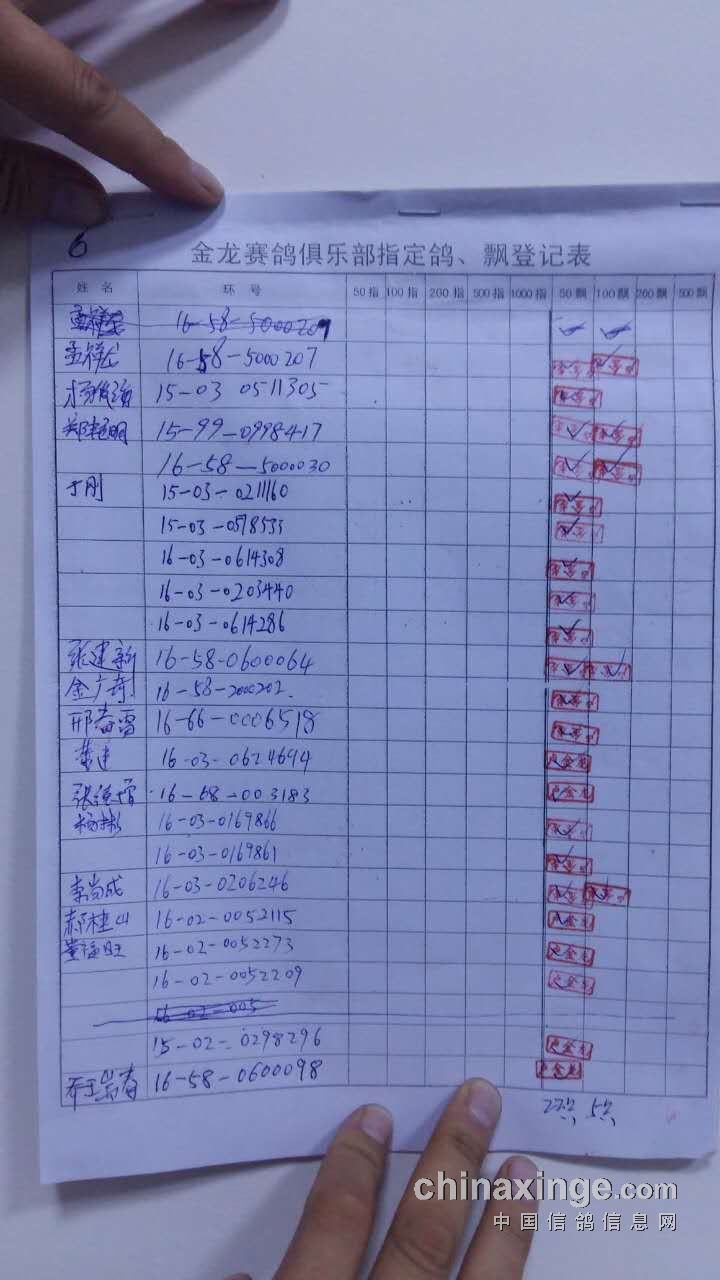 6
金龙赛鸽俱乐部指定鸽、飘登记表
姓 名 环 号 50指 100指 200指 500指 1000指 50飘 100飘 200飘 500飘
16-58-5000207
孟祥 16-58-5000207
杨 15-03 0511305
郑 明 15-99-0998417
16-58-5000030
于刚 15-03-0211160
15-03-0578533
16-03-0614308
16-03-0203440
16-03-0614286
张建新 16-58-0600064
金广奇 16-58-2000202.
邢春雷 16-66-0006518
16-03-0624694
张 16-58-003183
杨彬 16-03-0169866
16-03-0169861
李尚成 16-03-0206246
郝桂山 16-02-0052115
董福旺 16-02-0052273
16-02-0052209
16-02-005
15-02-0298296
16-58-0600098
chinaxinge.com
中国信鸽信息网